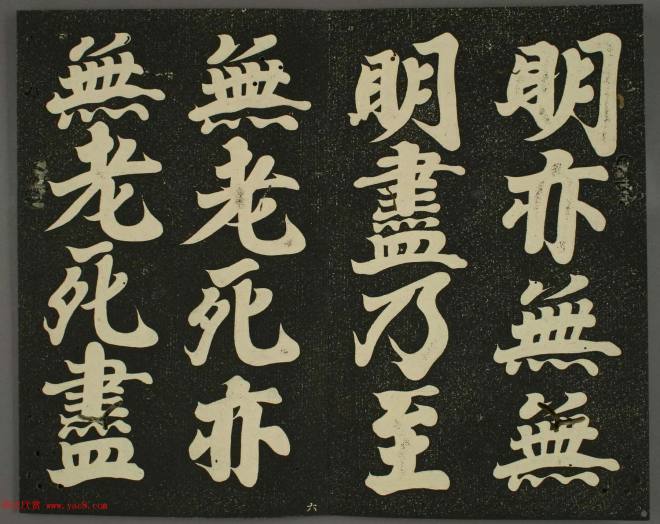 明亦無無
明盡乃至
無老死亦
無老死盡
六
www.yac8.com